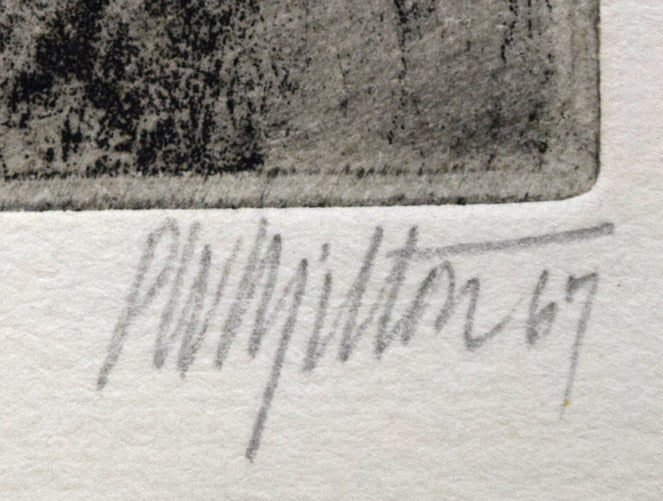 PW Milton 67